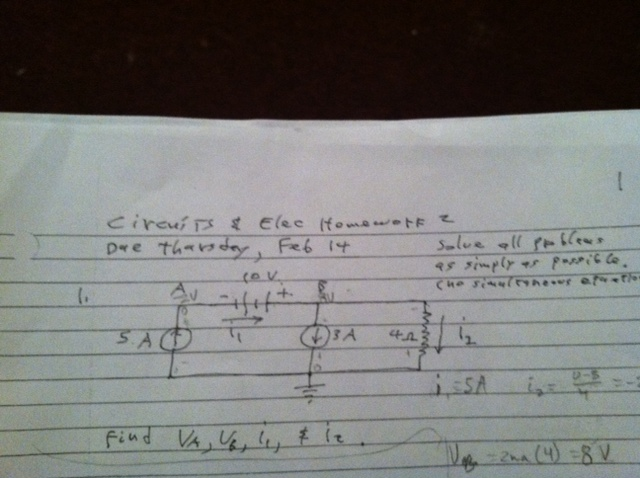 1
Circuits & Elec Homework 2
Due Thursday, Feb 14
Solve all problems
as simply as possible.
(no simultaneous equation
1.
10 V
A
- +
B
5 A
i1
3A
4Ω
i2
i1 = 5A
Find VA, VB, i1, & i2.
(4) = 8 V